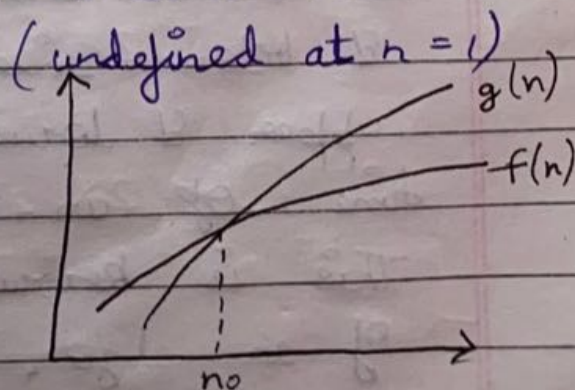 (undefined at n = 1)
g(n)
f(n)
no